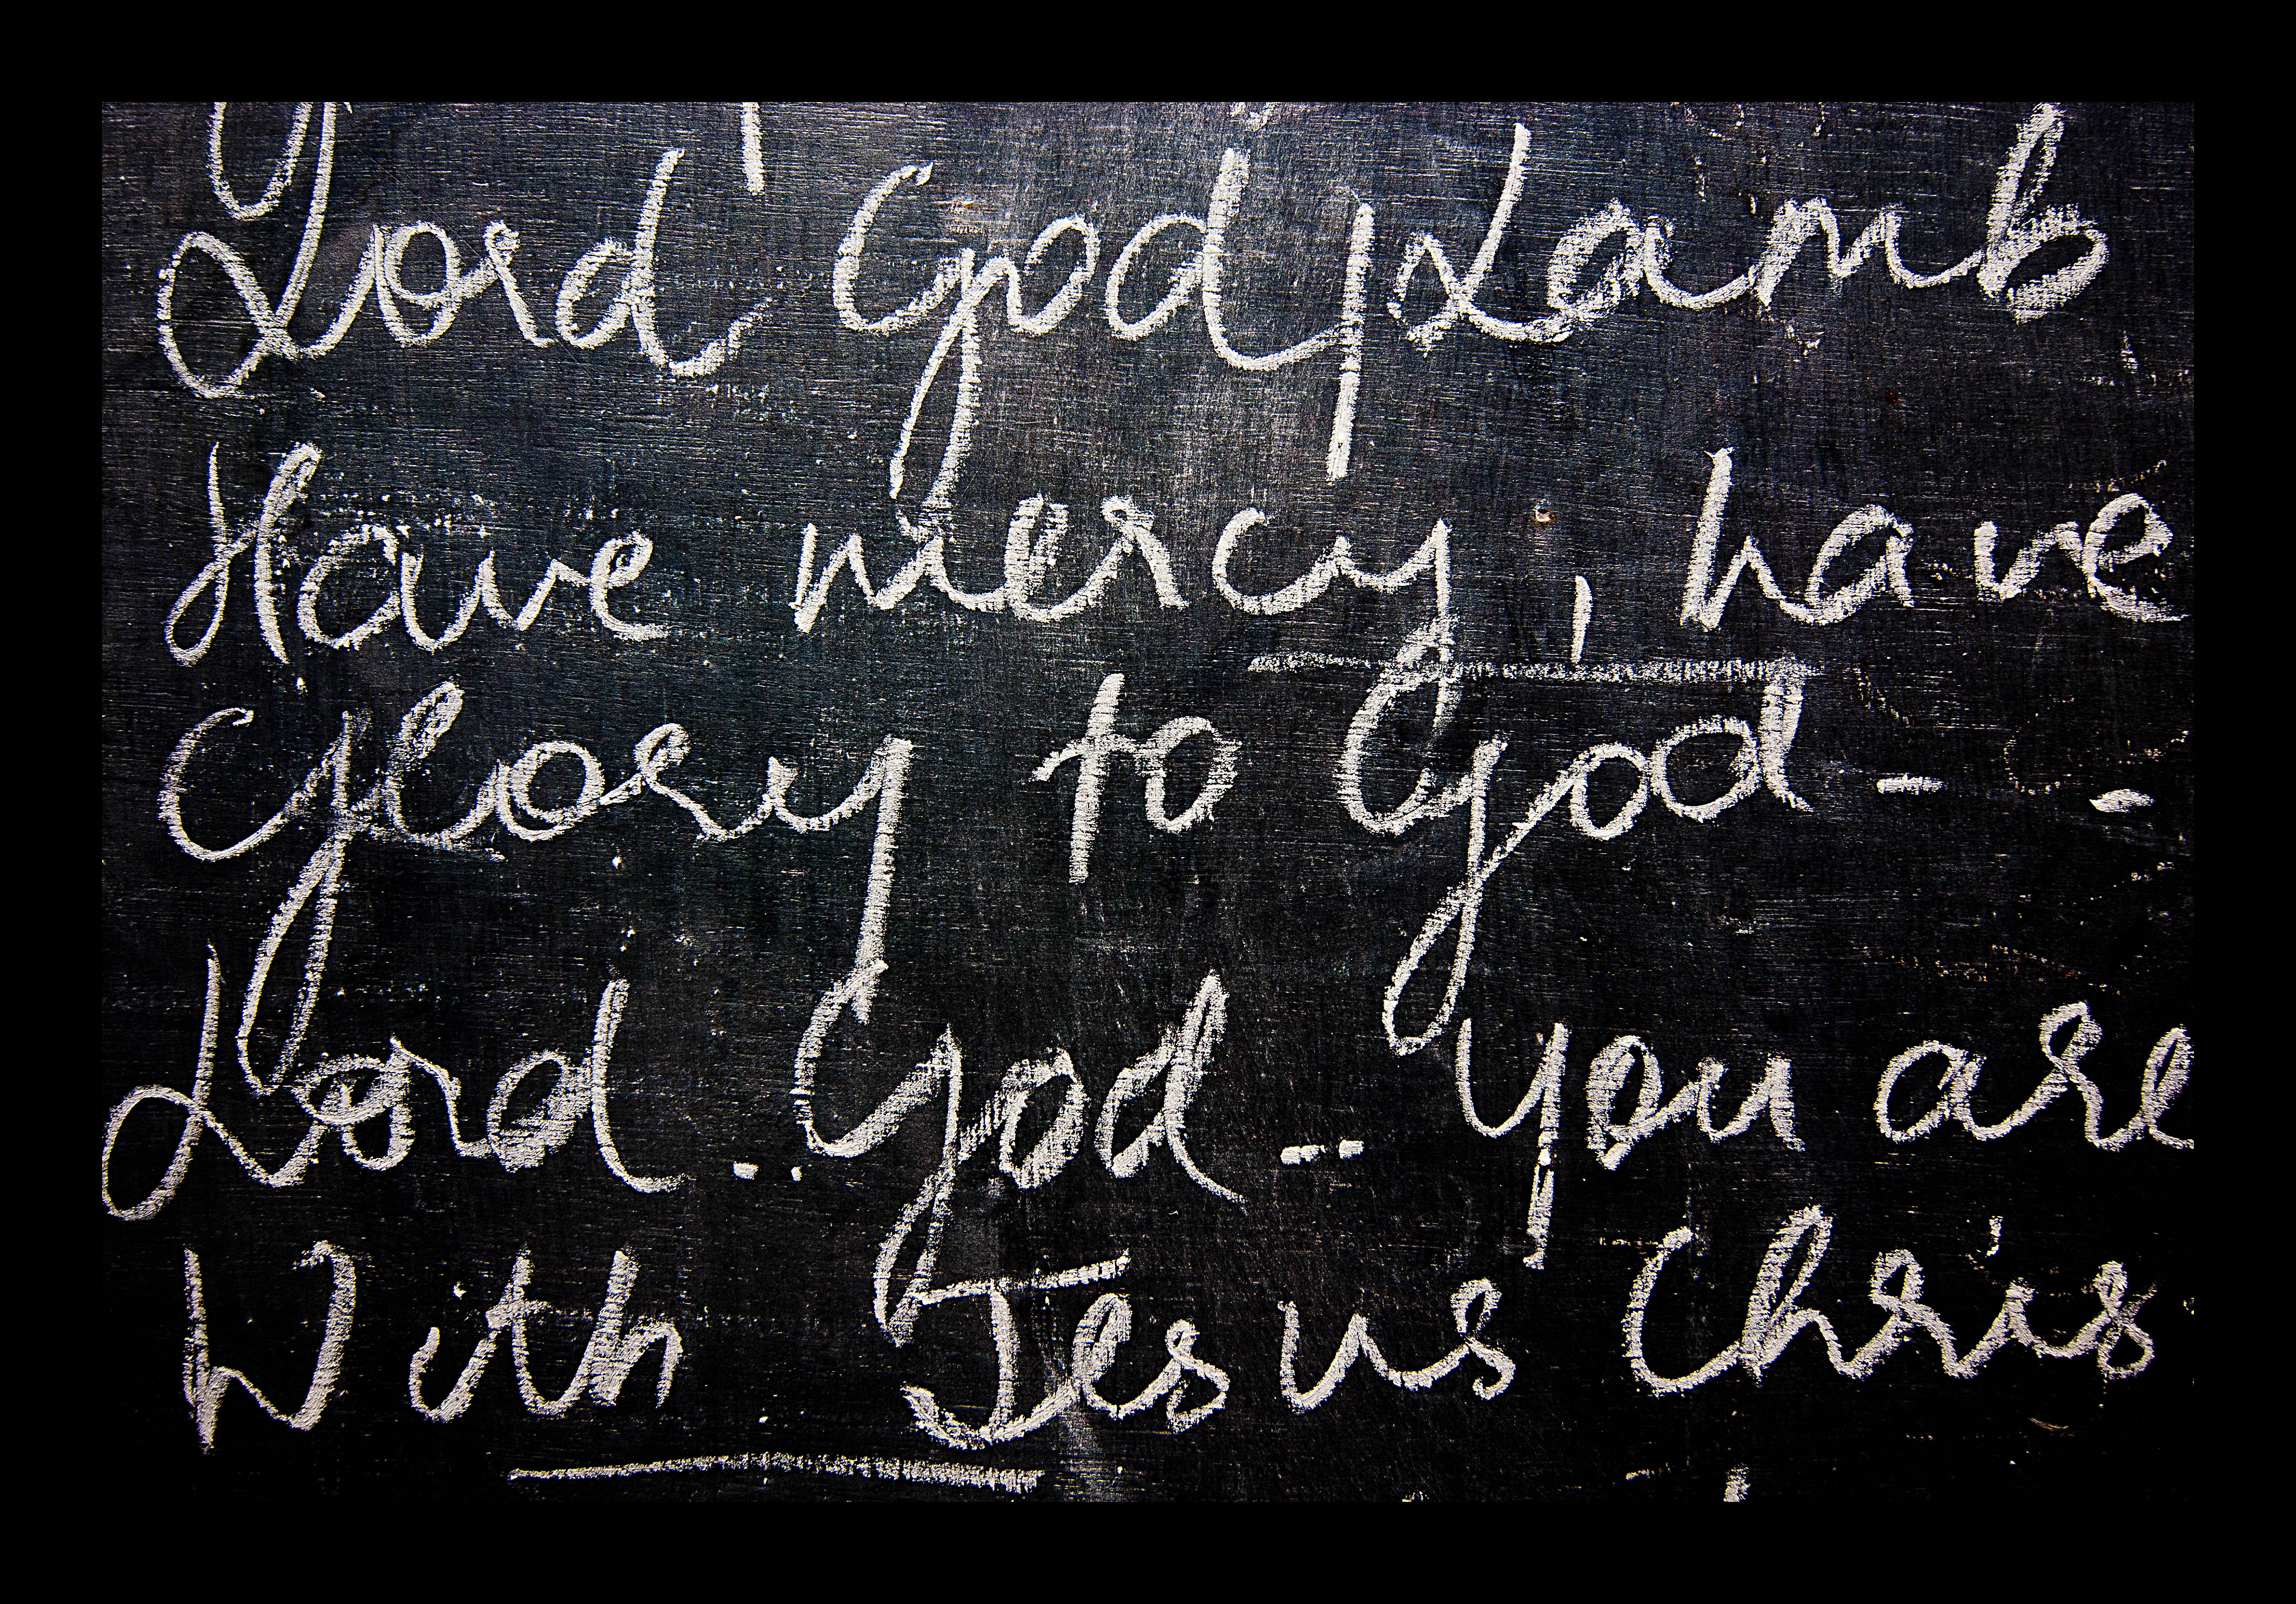 Lord God, Lamb
Have mercy, have
Glory to God - -
Lord -- God -- you are
With Jesus Chris